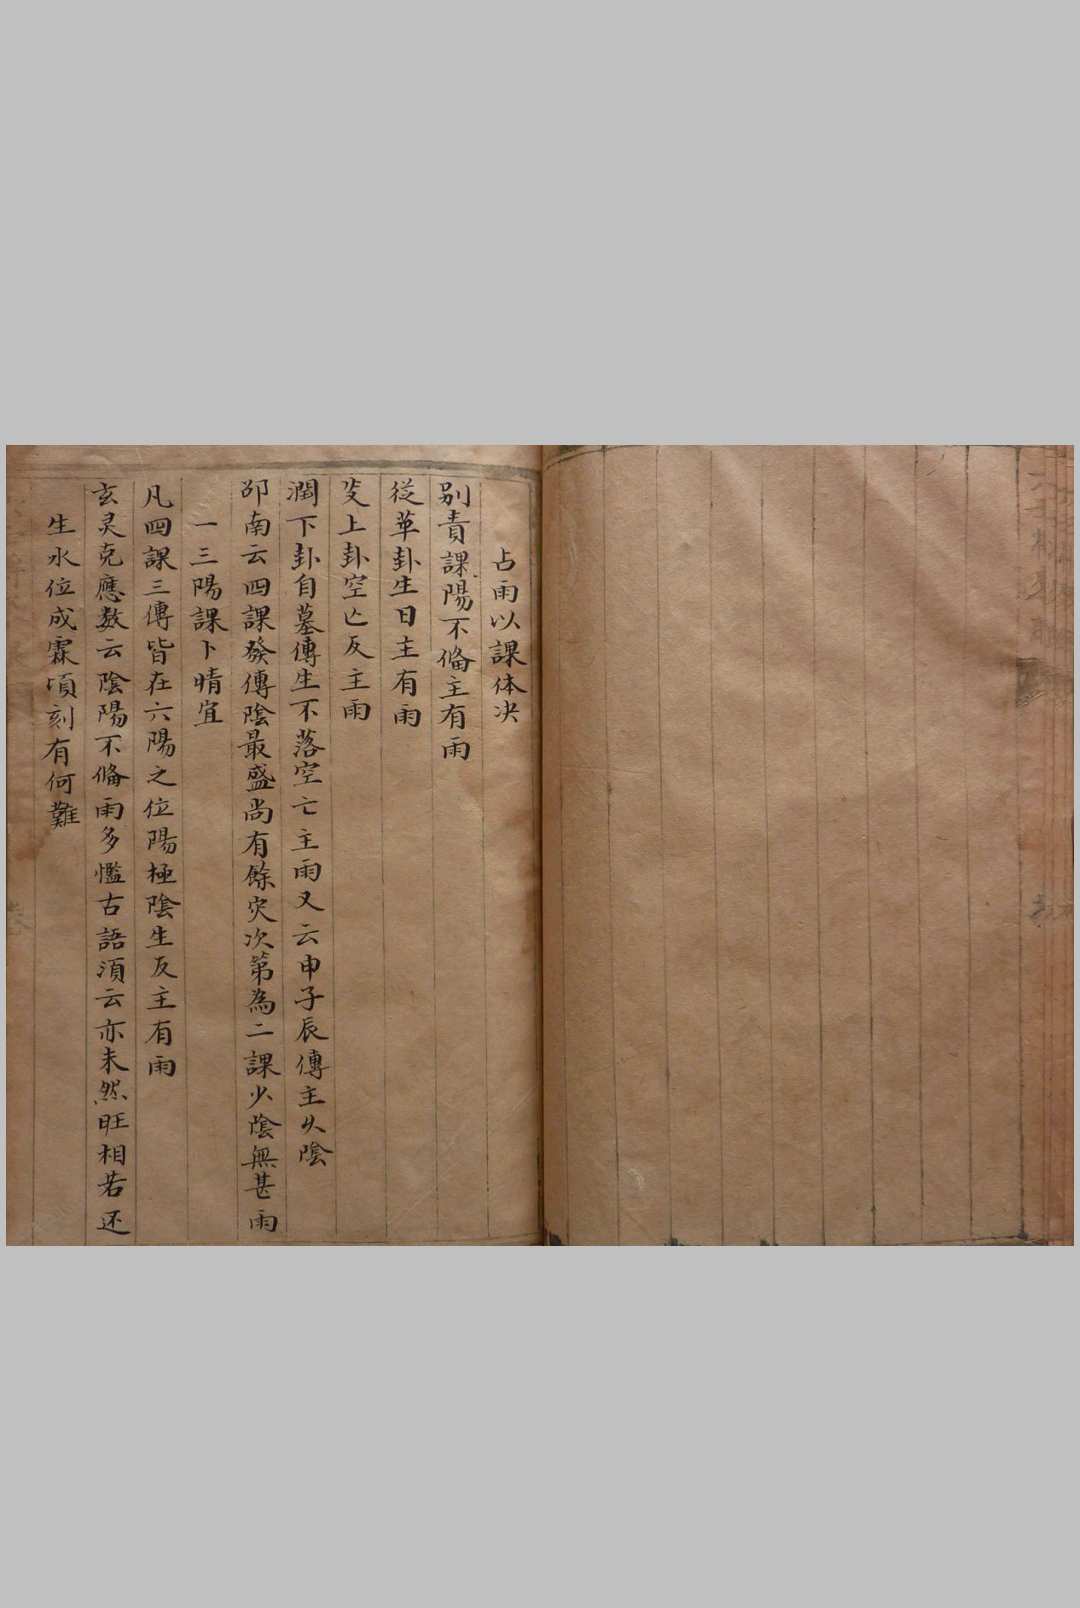 占雨以課体决
别責課陽不俻主有雨
從革卦生日主有雨
炎上卦空亡反主雨
潤下卦自墓傳生不落空亡主雨又云申子辰傳主久陰
邵南云四課發傳陰最盛尚有餘灾次第為二課少陰無甚雨
一三陽課卜晴宜
凡四課三傳皆在六陽之位陽極陰生反主有雨
玄灵克應数云陰陽不俻雨多慳古語須云亦未然旺相若还
生水位成霖頃刻有何難